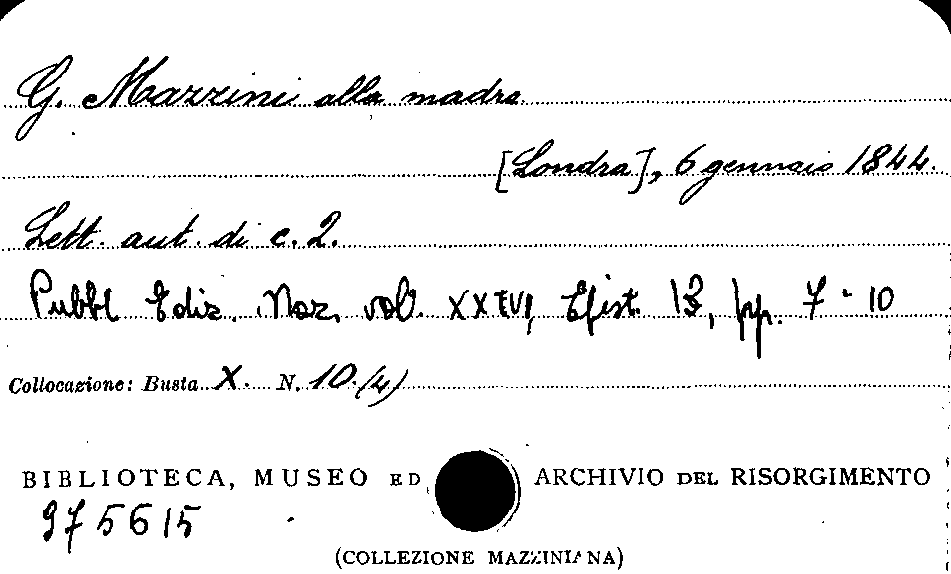 G. Mazzini alla madre
[Londra], 6 gennaio 1844.
Lett. aut. di c. 2.
Pubbl Ediz. Naz. vol. XXVI, Epist. 13, pp. 7-10
Collocazione: Busta X. N. 10.(4)
BIBLIOTECA, MUSEO ED ARCHIVIO DEL RISORGIMENTO
975615
(COLLEZIONE MAZZINIANA)